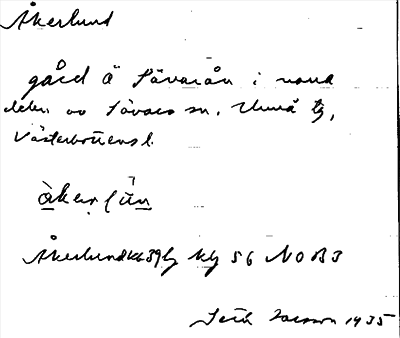 Åkerlund
gård å Sävarån i norra
delen av Sävars sn. Umeå tg,
Västerbottens l.
åkerlūn
Åkerlund kg 56 NO B3
1935